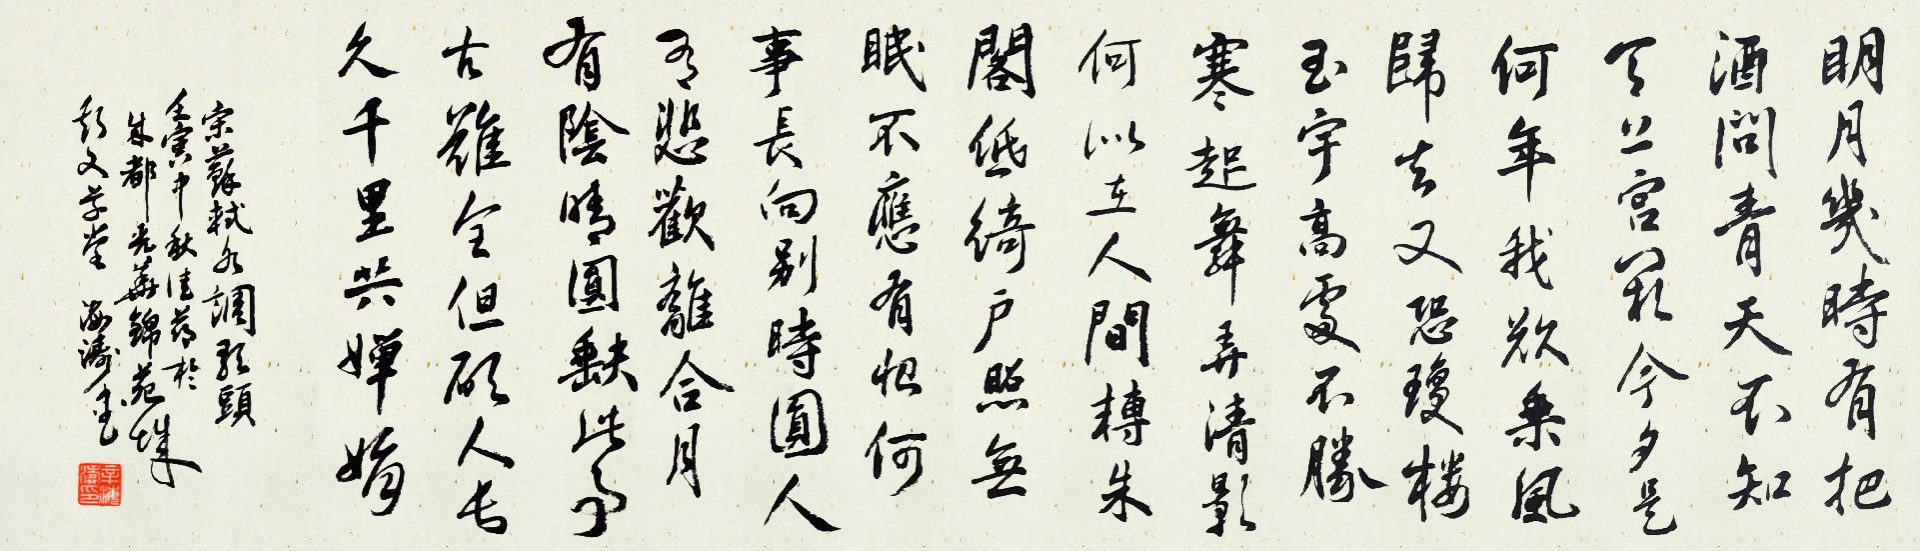 明月幾時有把
酒問青天不知
天上宮闕今夕是
何年我欲乘風
歸去又恐瓊楼
玉宇高處不勝
寒起舞弄清影
何似在人間轉朱
閣低綺戶照無
眠不應有恨何
事長向別時圓人
有悲歡離合月
有陰晴圓缺此事
古難全但願人長
久千里共嬋娟
宋蘇軾水調歌頭
壬寅中秋佳節於
成都光華錦苑城
海濤書